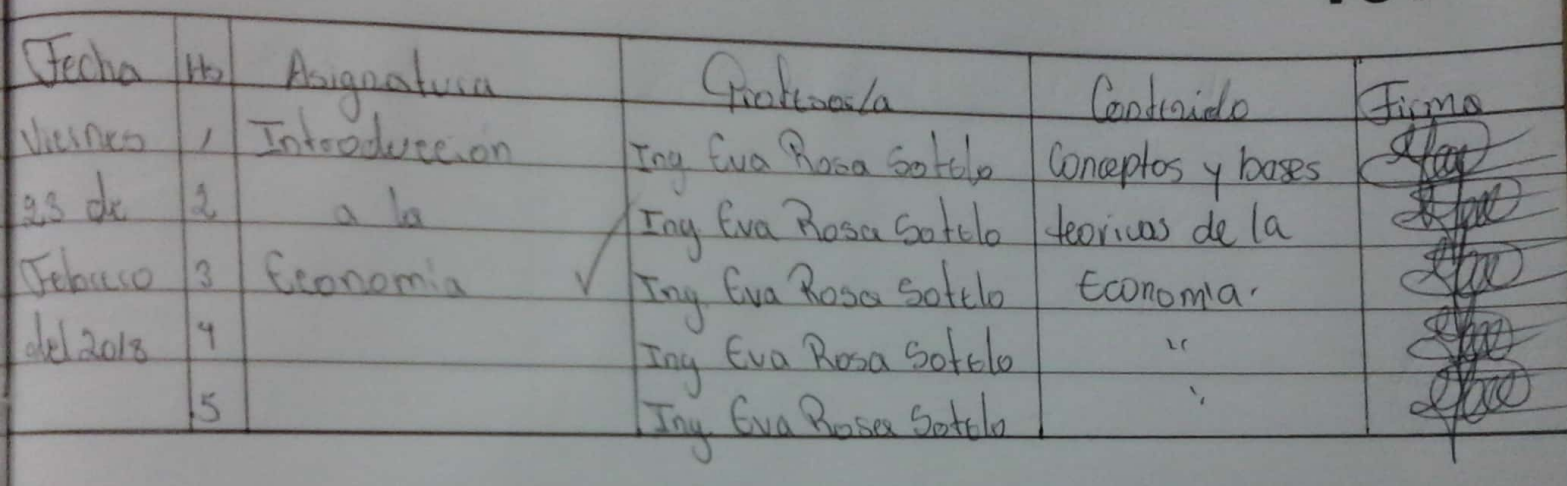 Fecha Hs Asignatura Profesor/a Contenido Firma
Viernes 1 Introduccion Ing Eva Rosa Sotelo Conceptos y bases
23 de 2 a la Ing Eva Rosa Sotelo teoricas de la
Febrero 3 Economia ✓ Ing Eva Rosa Sotelo Economia.
del 2018 4 Ing Eva Rosa Sotelo "
5 Ing Eva Rosa Sotelo "